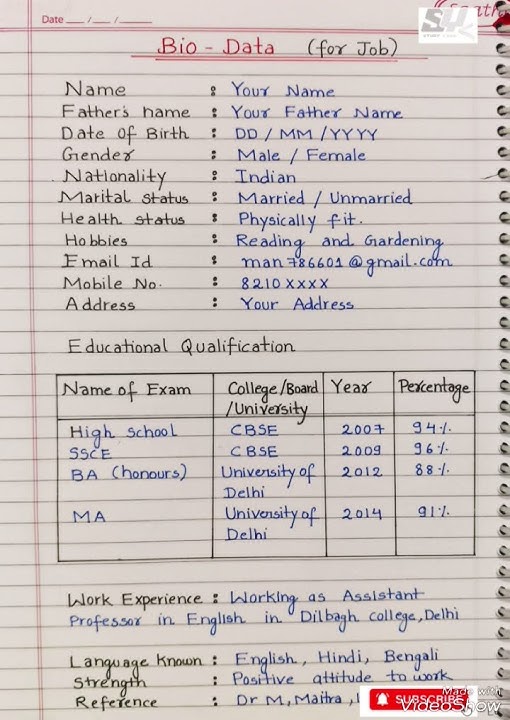 Date __/__/__
SK
Bio - Data (for Job)
Name : Your Name
Father's name : Your Father Name
Date Of Birth : DD / MM / YYYY
Gender : Male / Female
Nationality : Indian
Marital status : Married / Unmarried
Health status : Physically fit.
Hobbies : Reading and Gardening
Email Id : man786601@gmail.com
Mobile No. : 8210XXXX
Address : Your Address
Educational Qualification
Name of Exam College/Board Year Percentage
/University
High School CBSE 2007 94%
SSCE CBSE 2009 96%
BA (honours) University of 2012 88%
Delhi
MA University of 2014 91%
Delhi
Work Experience : Working as Assistant
Professor in English in Dilbagh college, Delhi
Language Known : English, Hindi, Bengali
Strength : Positive attitude to work
Made with
Reference : Dr M, Maitra,
SUBSCRIBE
VideoShow